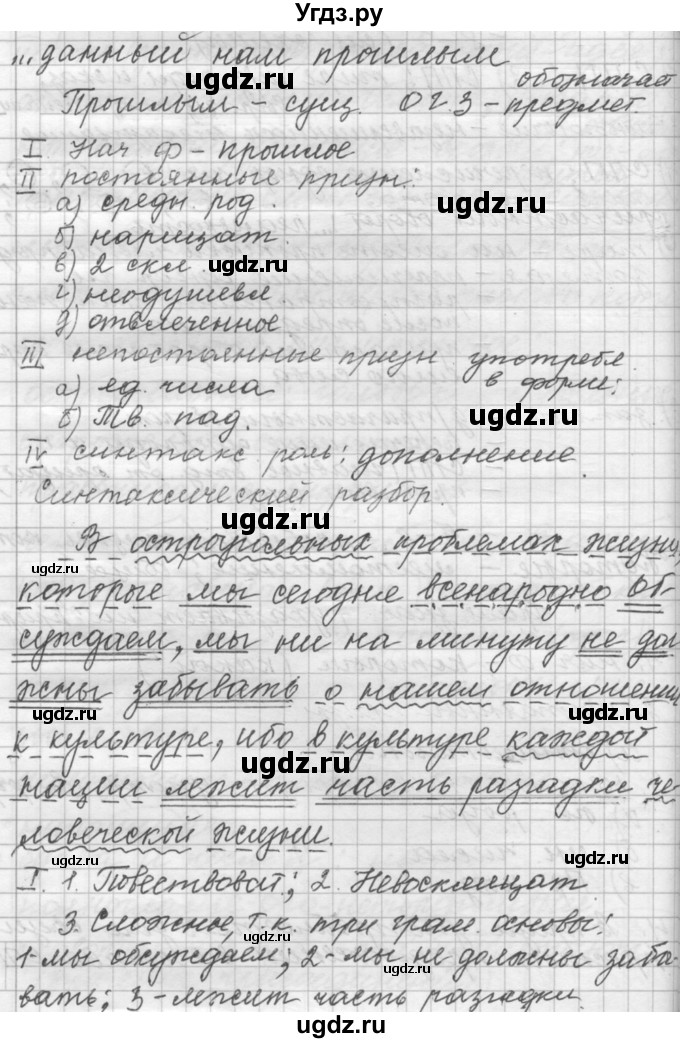 Угдз.ру
...данный нам прошлым
ugdz.ru
обозначает
Прошлым - сущ. ОГЗ - предмет.
I Нач ф - прошлое
II постоянные призн:
а) средн. род.
ugdz.ru
б) нарицат.
в) 2 скл.
ugdz.ru
г) неодушевл.
д) отвлеченное
III непостоянные призн употребл.
а) ед. числа в форме:
б) Тв. пад.
ugdz.ru
IV синтакс роль: дополнение.
Синтаксический разбор.
ugdz.ru
В остроугольных проблемах жизни,
ugdz.ru
которые мы сегодня всенародно об-
суждаем, мы ни на минуту не дол-
жны забывать о нашем отношении
ugdz.ru
ugdz.ru
к культуре, ибо в культуре каждой
ugdz.ru
нации лежит часть разгадки че-
ловеческой жизни.
ugdz.ru
ugdz.ru
I. 1. Повествоват.; 2. Невосклицат
3. Сложное, т.к. три грам. основы:
ugdz.ru
1-мы обсуждаем; 2-мы не должны забы-
вать; 3-лежит часть разгадки.
ugdz.ru